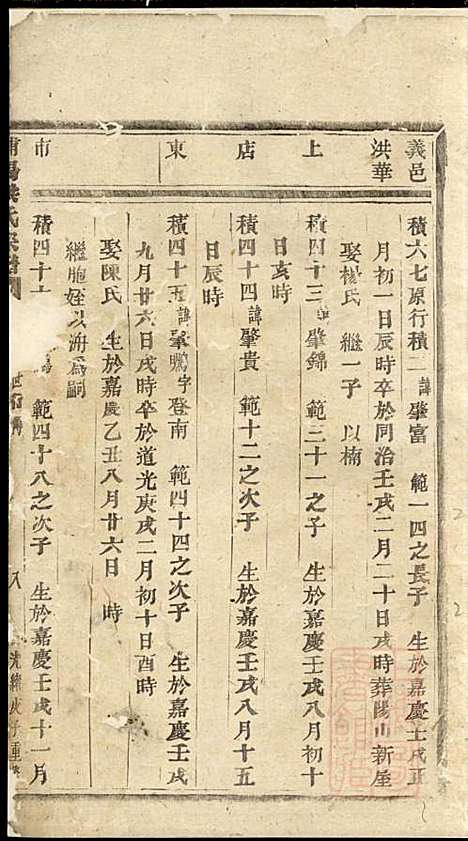 義邑
洪華
上
店
東
市
積六七原行積二諱肇富　範一四之長子　生於嘉慶壬戌正
月初一日辰時卒於同治壬戌二月二十日戌時葬陽山新屋
娶楊氏　繼一子　以楠
積四十三諱肇錦　範三十一之子　生於嘉慶壬戌八月初十
日亥時
積四十四諱肇貴　範十二之次子　生於嘉慶壬戌八月十五
日辰時
積四十五諱肇鵬字登南　範四十四之次子　生於嘉慶壬戌
九月廿六日戌時卒於道光庚戌二月初十日酉時
娶陳氏　生於嘉慶乙丑八月廿六日　時
繼胞姪以洲爲嗣
積四十　範四十八之次子　生於嘉慶壬戌十一月
氏宗譜　世行傳　八　光緒戊子重